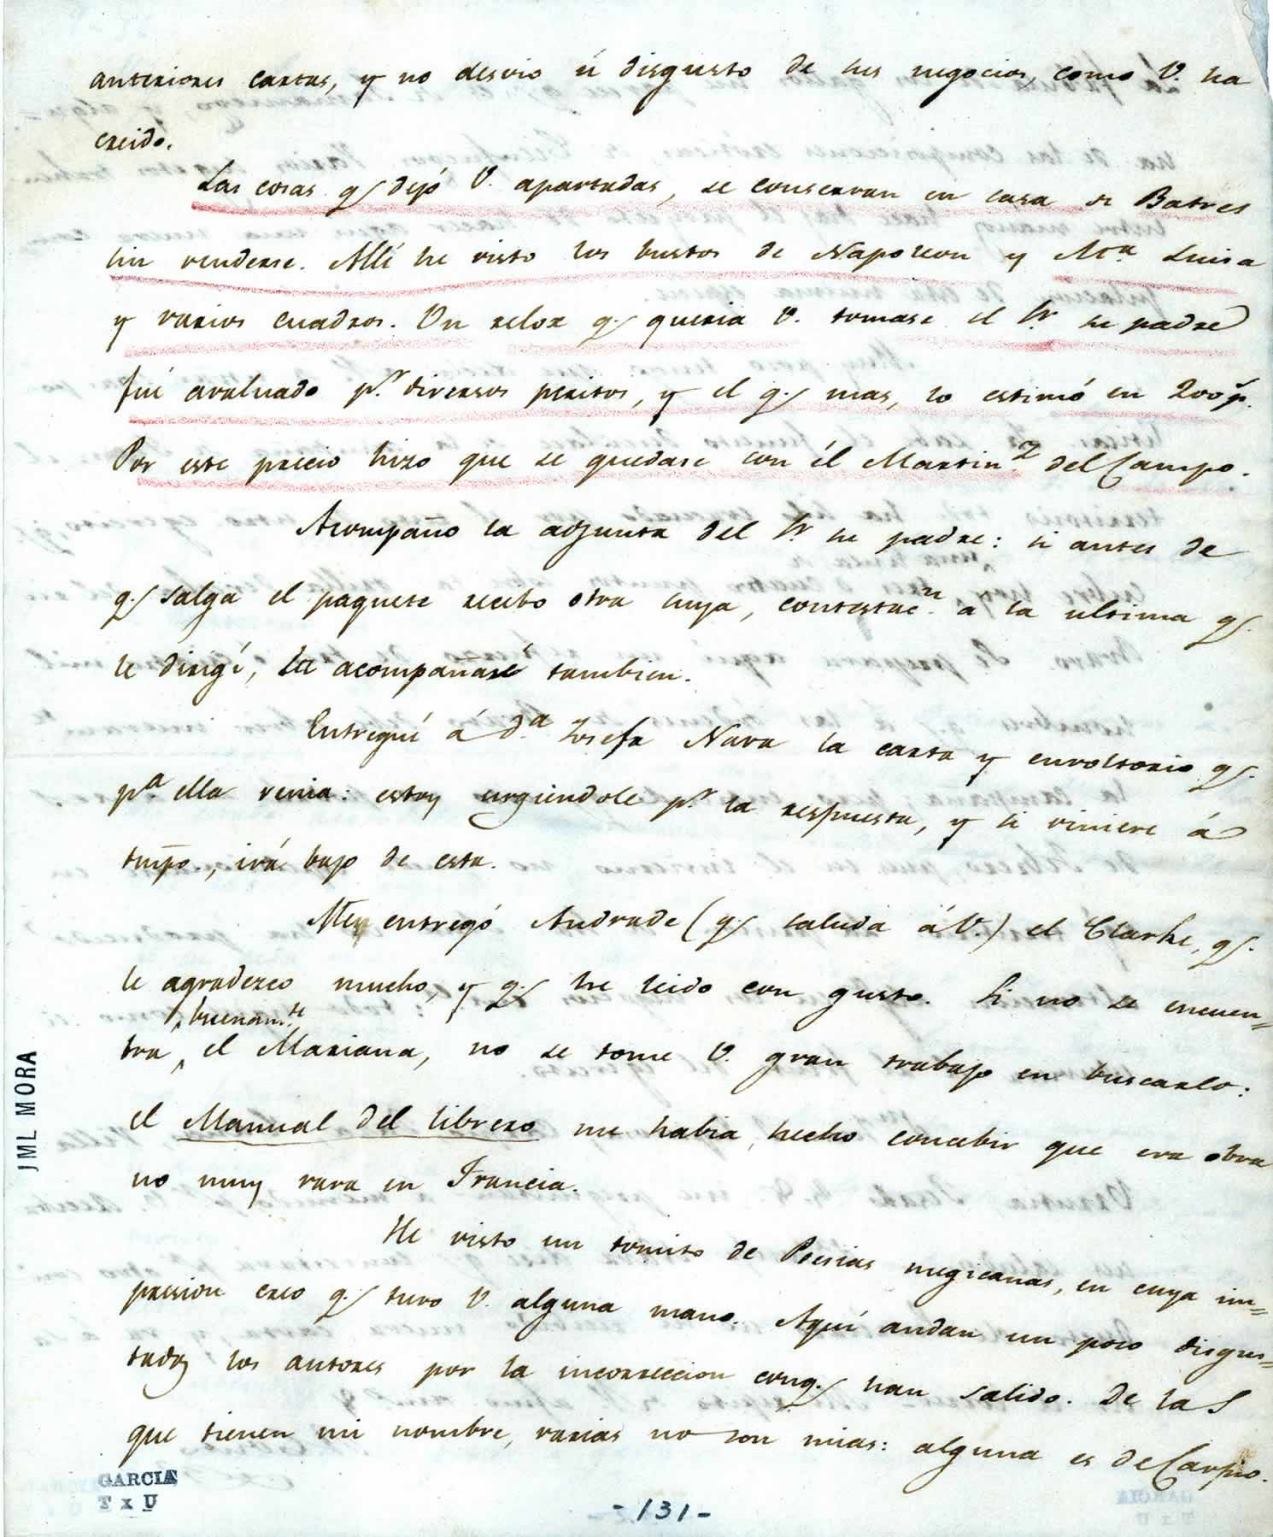 anteriores cartas, y no desvio ú disgusto de sus negocios, como V. ha
creido.
Las cosas q.e dejó V. apartadas, se conservan en casa de Batres
sin venderse. Allí he visto los bustos de Napoleon y M.a Luisa
y varios cuadros. Un relox q.e queria V. tomase el Sr. su padre
fué avaluado p.r diversos peritos, y el q.e mas, lo estimó en 200 p.
Por este precio hizo que se quedase con él Martin.z del Campo.
Acompaño la adjunta del Sr. su padre: si antes de
q.e salga el paquete recibo otra suya, contestac.n a la ultima q.e
le dirigí, la acompañaré tambien.
Entregué á D.a Josefa Nava la carta y envoltorio q.e
p.a ella venia: estoy urgiendole p.r la respuesta, y si viniere á
tmpo., irá bajo de esta.
Me entregó Andrade (q.e saluda á V.) el Clarke, q.e
le agradezco mucho, y q.e he leido con gusto. Si no se encuen=
tra buenam.te el Mariana, no se tome V. gran trabajo en buscarlo:
el Manual del librero me habia hecho concebir que era obra
no muy rara en Francia.
He visto un tomito de Poesias megicanas, en cuya im=
presion creo q.e tuvo V. alguna mano. Aquí andan un poco disgus=
tados los autores por la incorreccion conq.e han salido. De las
que tienen mi nombre, varias no son mias: alguna es de Carpio.
JML MORA
GARCIA
T x U
-131-